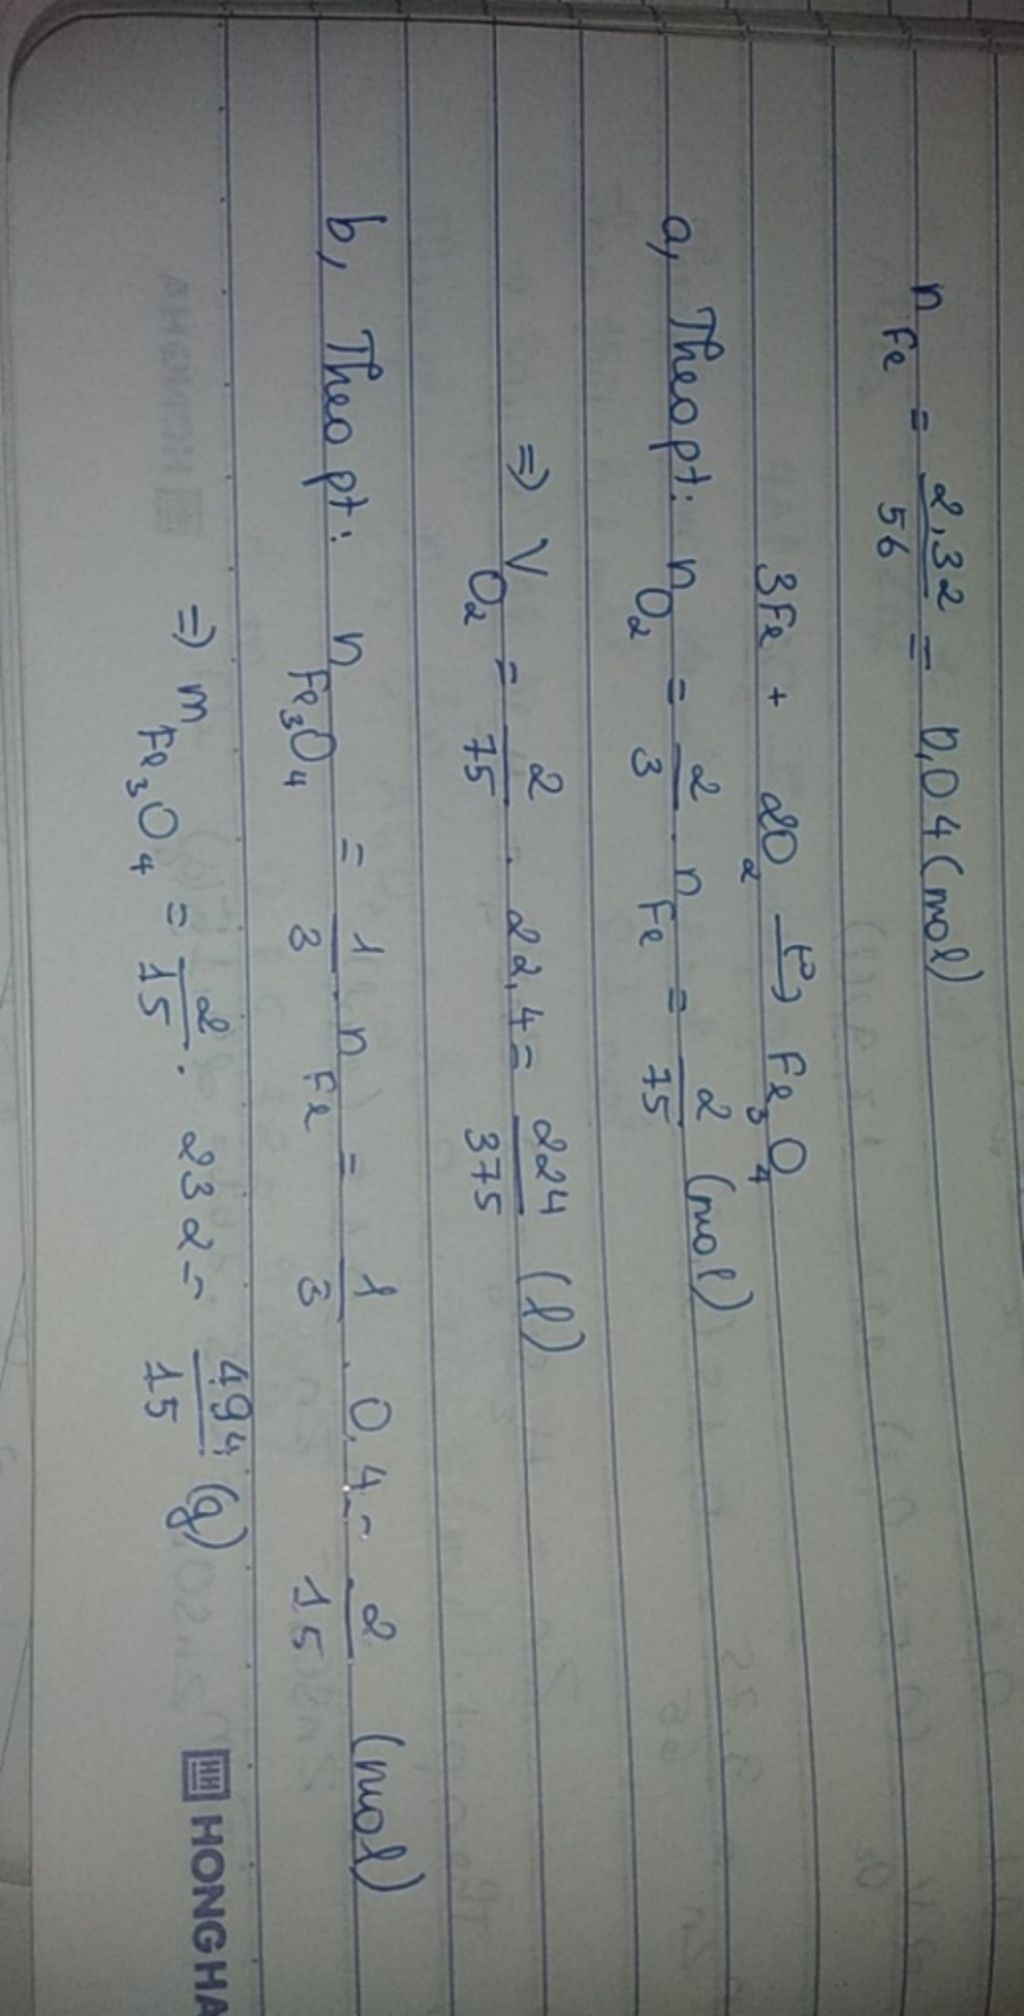 n Fe = 2,32/56 = 0,04 (mol)
3Fe + 2O₂ t°→ Fe₃O₄
a, Theo pt: n O₂ = 2/3 . n Fe = 2/75 (mol)
=> V O₂ = 2/75 . 22,4 = 224/375 (l)
b, Theo pt: n Fe₃O₄ = 1/3 . n Fe = 1/3 . 0,4 = 2/15 (mol)
=> m Fe₃O₄ = 2/15 . 232 = 494/15 (g)
HONG HA